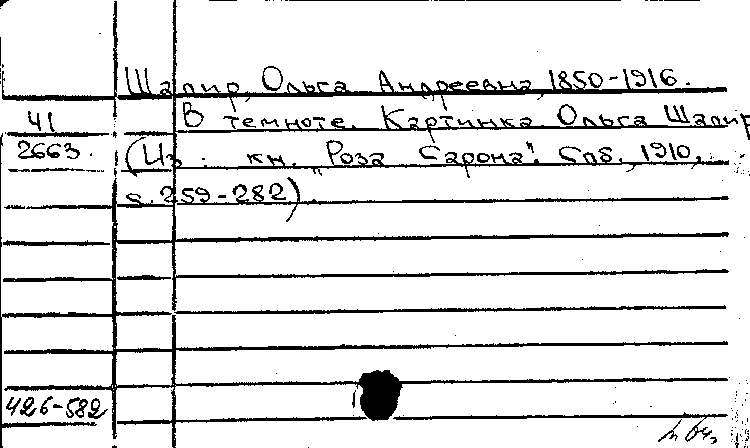 Шапир, Ольга Андреевна, 1850-1916.
41 В темноте. Картинка Ольга Шапир
2663. (Из кн. "Роза Сарона". Спб., 1910,
с. 259-282).
426-582